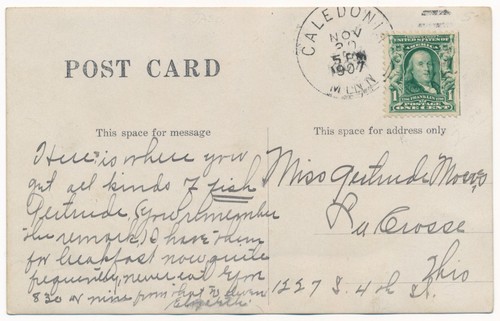 CALEDONIA
NOV
20
5 PM
1907
MINN.
UNITED STATES OF AMERICA
FRANKLIN
1 POSTAGE 1
ONE CENT
POST CARD
This space for message
This space for address only
Here is where you
get all kinds of fish
Gertrude, you remember
the remark, I have them
for breakfast now quite
frequently, never eat before
8 30 or nine from what
Miss Gertrude
La Crosse
1227 S. 4th St.